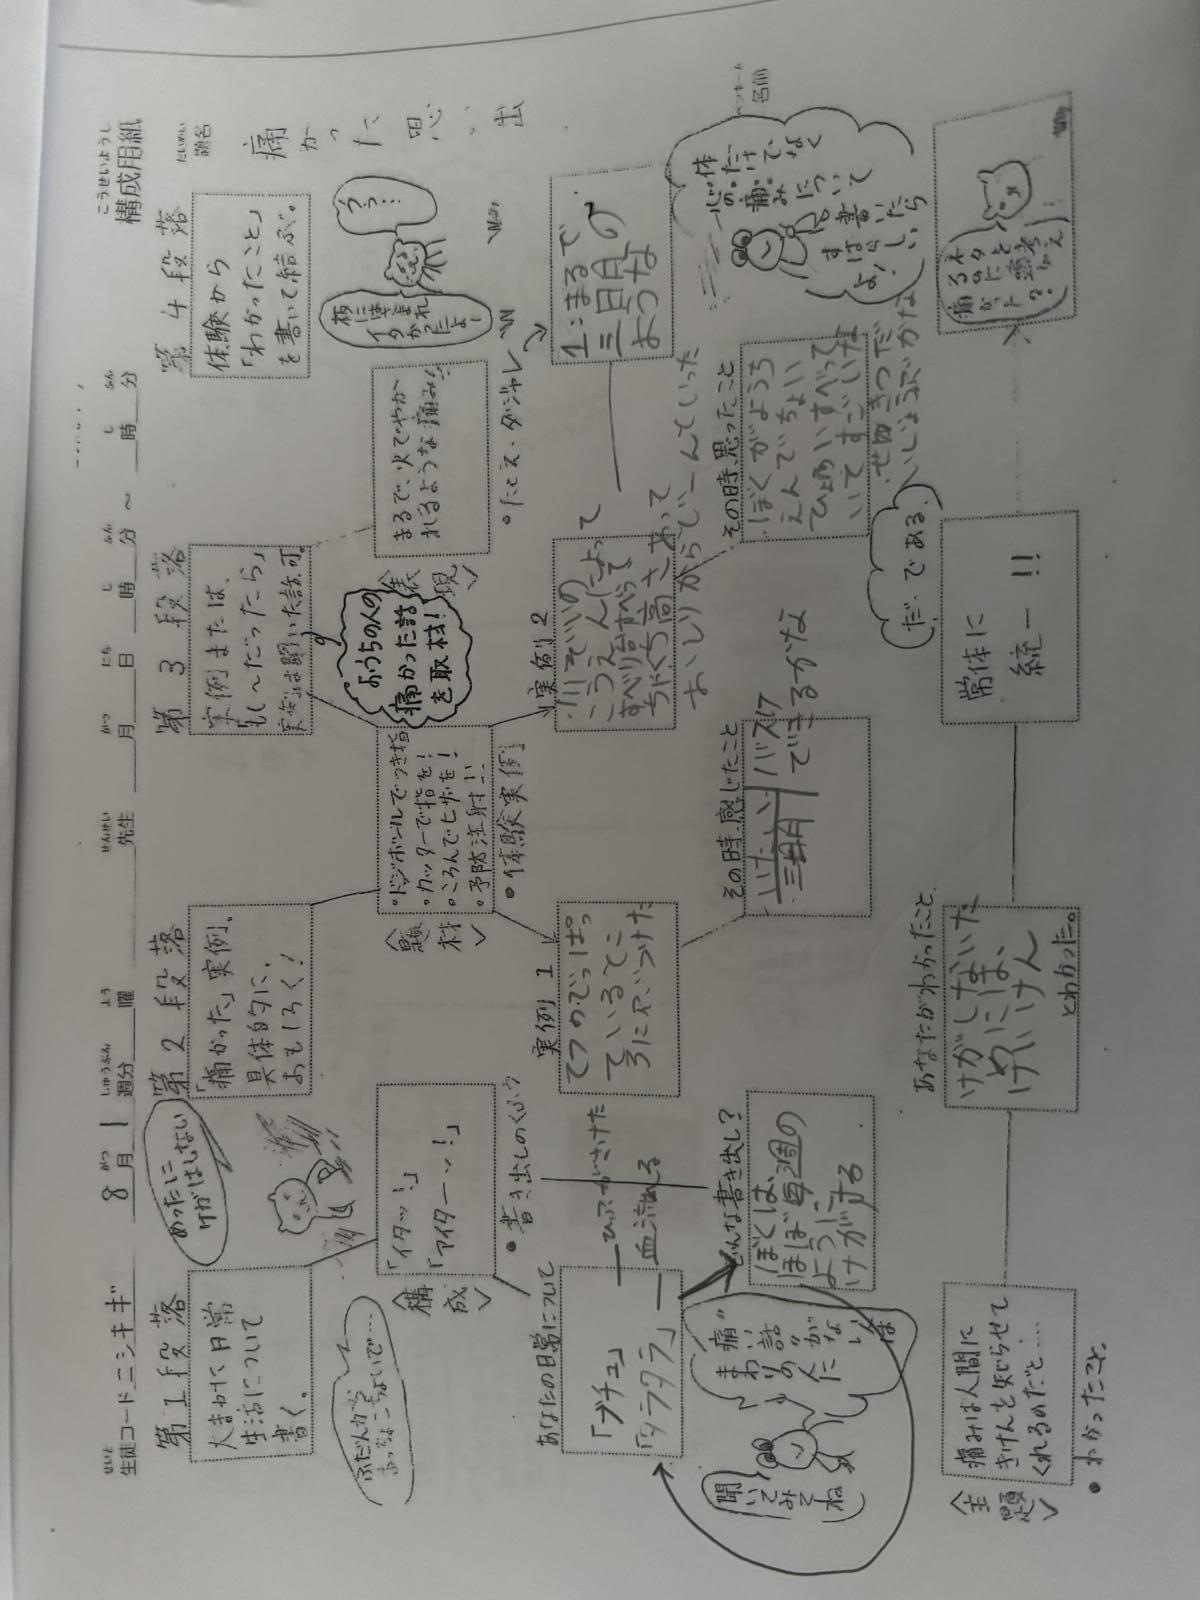 こうせいようし
構成用紙
だいめい
題名
痛かった思い出
名前
せいと
生徒コード ニシキギ
8月1週分
がつ
しゅうぶん
よう
曜
せんせい
先生
がつ
月
にち
日
じ
時
ふん
分
～
じ
時
ふん
分
第1段落
大まかに日常
生活について
書く。
第2段落
「痛かった」実例。
具体的に、
おもしろく!
第3段落
実例または、
もし〜だったら」
第4段落
体験から
「わかったこと」
を書いて結ぶ。
めったに
ケガはしない
ふだんから
おっちょこちょいで…
〈構成〉
「イタッ!」
「アイターッ!」
•書き出しのくふう
〈題材〉
・ドッジボールでつき指
・カッターで指を!
・ころんでヒザを!
・予防注射!!
•体験実例
おうちの人の
痛かった話
を取材!
〈表現〉
まるで、火でやか
れるような痛み!!
•たとえ・ダジャレ
あなたの日常について
「ブチュ」
「タラタラ」
ひふがさけた
血流れる
実例1
てつのでっぱっ
ているとこ
ろに
実例2
こうえんによって
すべり台すべって
ちゃくち高さあって
おしりからでーんていった
1:まるで
三日月の
ような
体だけでなく
心の痛みについて
書いたら
すばらしい
よ!
聞いてみてね
まわりの人に
"痛い話"がない
どんな書き出し?
ぼくは、
ほぼ毎週の
ように
ケガする
その時、感じたこと
いたい
三日月
バスケ
できるかな
その時、思ったこと
・ぼくがようち
えんでちょい
ひょいすべって
いてすごいな
〈主題〉
痛みは人間に
きけんを知らせて
くれるのだと…
•わかったこと
あなたがわかったこと
けがしないた
めには、
けいけん
とわかった。
常体に
統一!!
だ・である。